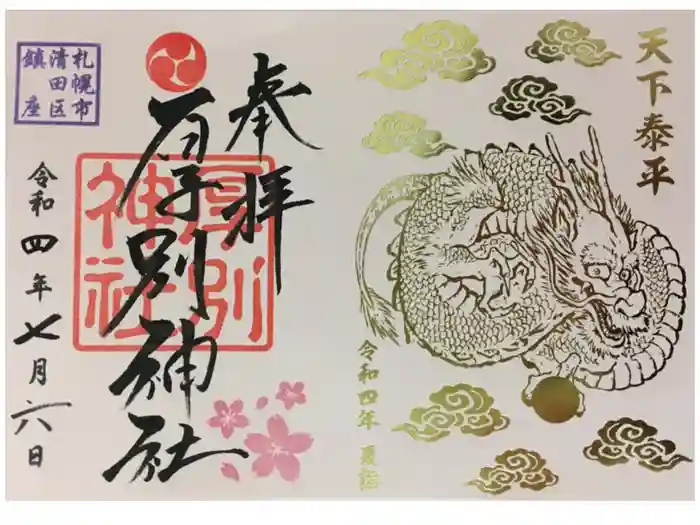 天下泰平
令和四年 夏詣
奉拝
厚別神社
厚別
神社
札幌市
清田区
鎮座
令和四年七月六日